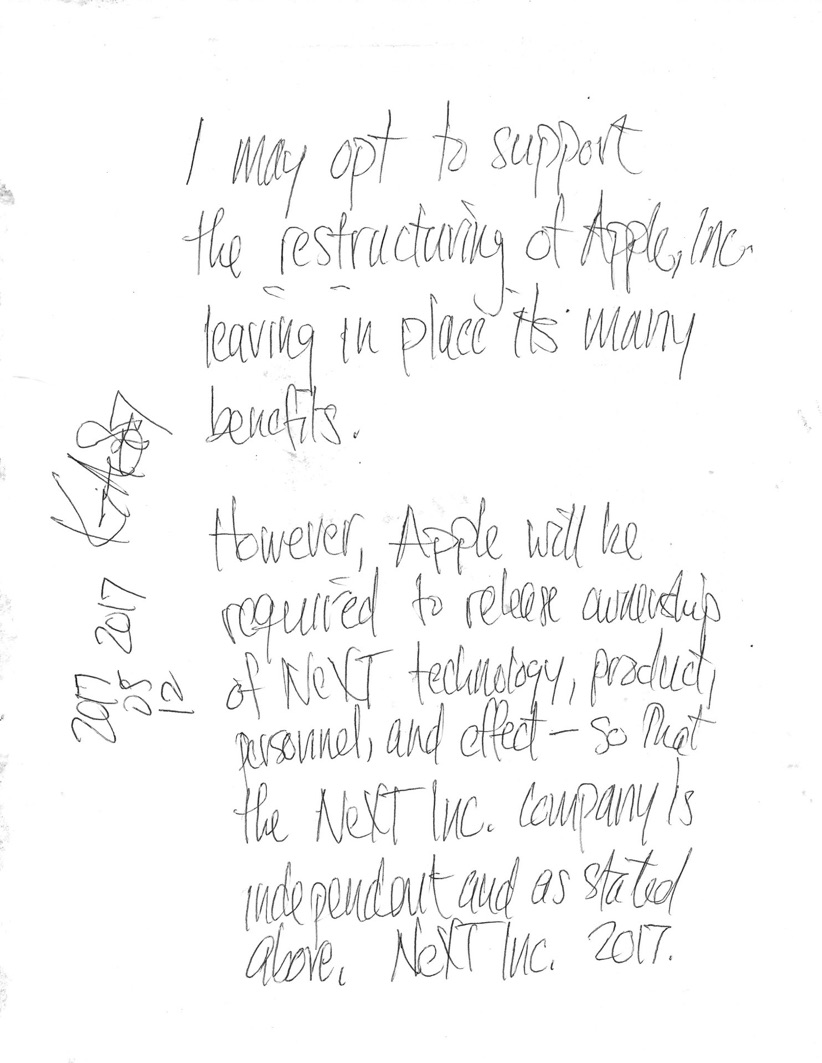 I may opt to support
the restructuring of Apple, Inc.
leaving in place its many
benefits.
However, Apple will be
required to release ownership
of NeXT technology, product,
personnel, and effect — so that
the NeXT Inc. company is
independent and as stated
above. NeXT Inc. 2017.
2017
08
12
2017